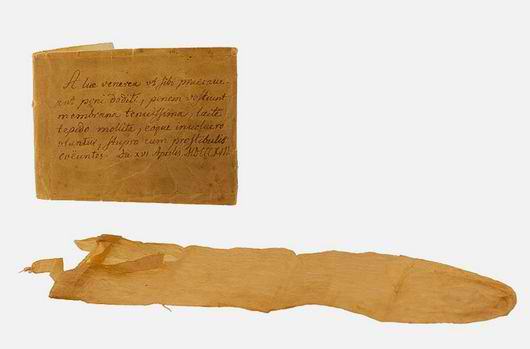 A lue venerea ut sibi praecave-
ant peni dediti, penem vestiunt
membrana tenuissima, lacte
tepido mollita, eaque involucro
utuntur, stupro cum prostibulis
coëuntes. Da XVI Aprilis